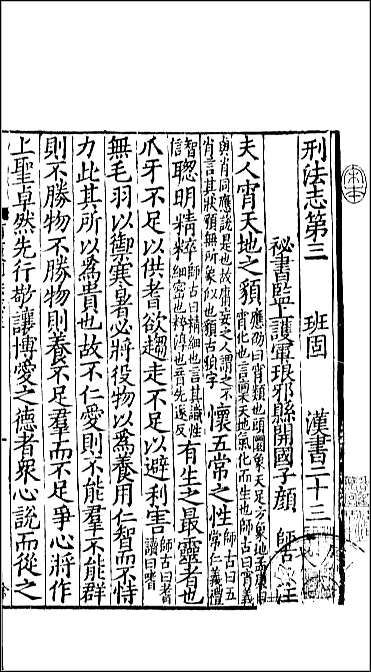 刑法志第三 班固 漢書二十三
秘書監上護軍琅邪縣開國子顏 師古 注
夫人宵天地之䫉應劭曰宵類也頭圜象天足方象地孟康曰宵化也言稟天地氣化而生也師古曰宵義
與肖同應說是也故庸妄之人謂之不肖言其狀䫉無所象似也䫉古貌字懷五常之性師古曰五常仁義禮
智信聰明精粹師古曰精細也言其識性細密也粹淳也音先遂反有生之最靈者也
爪牙不足以供耆欲趨走不足以避利害師古曰耆讀曰嗜
無毛羽以禦寒暑必將役物以爲養用仁智而不恃
力此其所以爲貴也故不仁愛則不能羣不能群
則不勝物不勝物則養不足羣而不足爭心將作
上聖卓然先行敬讓博愛之德者眾心說而從之